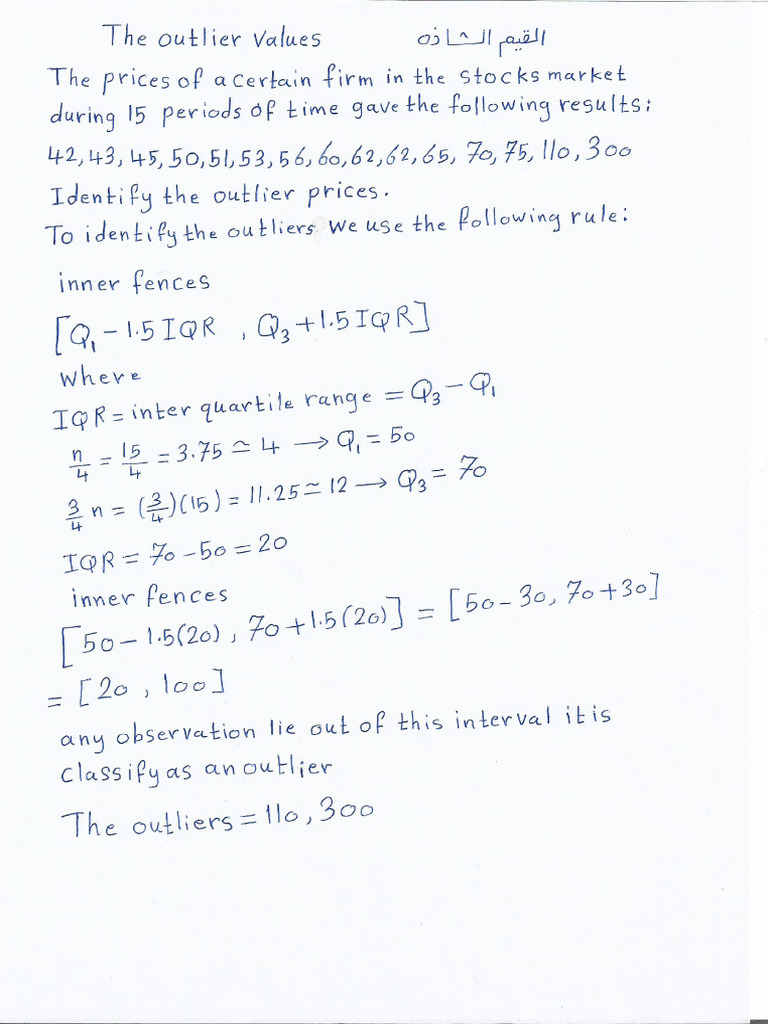 The outlier values القيم الشاذه
The prices of a certain firm in the stocks market
during 15 periods of time gave the following results:
42, 43, 45, 50, 51, 53, 56, 60, 62, 62, 65, 70, 75, 110, 300
Identify the outlier prices.
To identify the outliers we use the following rule:
inner fences
[Q₁ − 1.5 IQR , Q₃ + 1.5 IQR]
where
IQR = inter quartile range = Q₃ − Q₁
n/4 = 15/4 = 3.75 ≃ 4 → Q₁ = 50
3/4 n = (3/4)(15) = 11.25 ≃ 12 → Q₃ = 70
IQR = 70 − 50 = 20
inner fences
[50 − 1.5(20) , 70 + 1.5(20)] = [50 − 30, 70 + 30]
= [20 , 100]
any observation lie out of this interval it is
classify as an outlier
The outliers = 110, 300